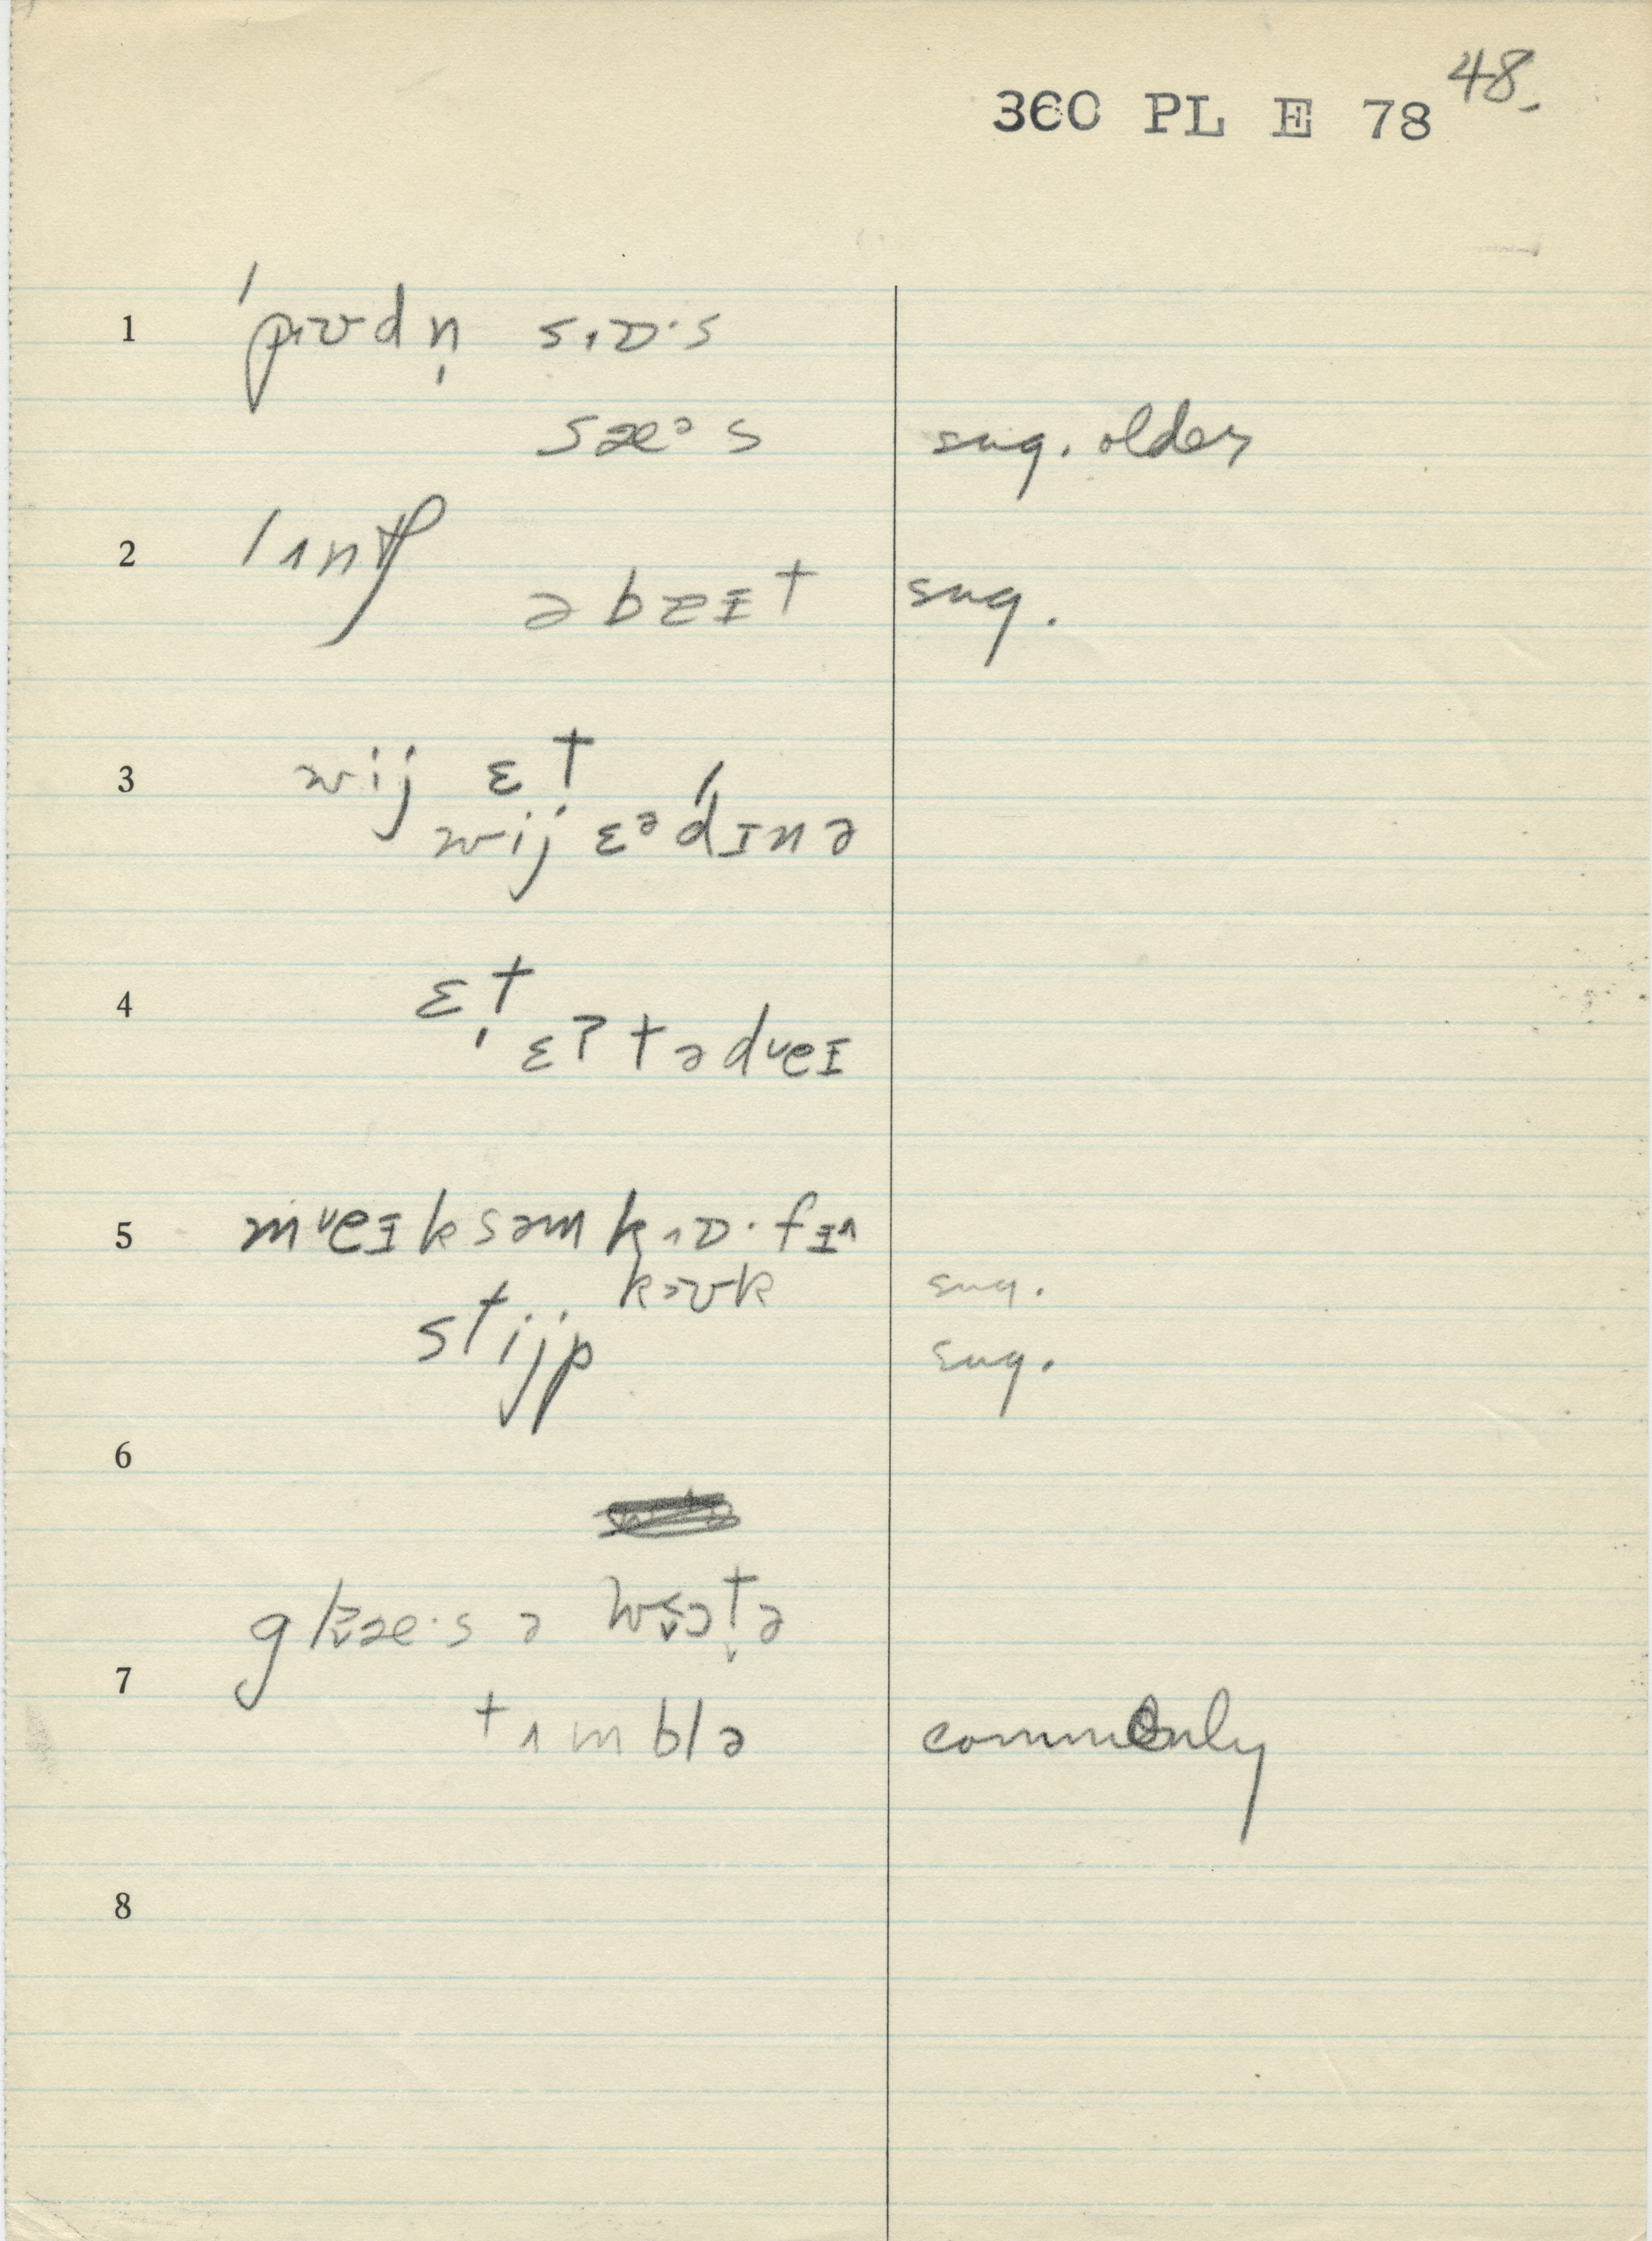 360 PL E 78 48.
1 ˈpɪʊdn̩ sɪɒ·s
sæᵊs sug. older
2 lʌntʃ
ə bɐɪt sug.
3 wij ɛt
wij ɛᵊ ˈdɪnə
4 ɛt
ɛʔ tədᶹeɪ
5 mᶹeɪk səm kɒ·fɪ
kɔʊk sug.
stijp sug.
6
glæ·s ə wɔtə
7
tʌmblə commonly
8